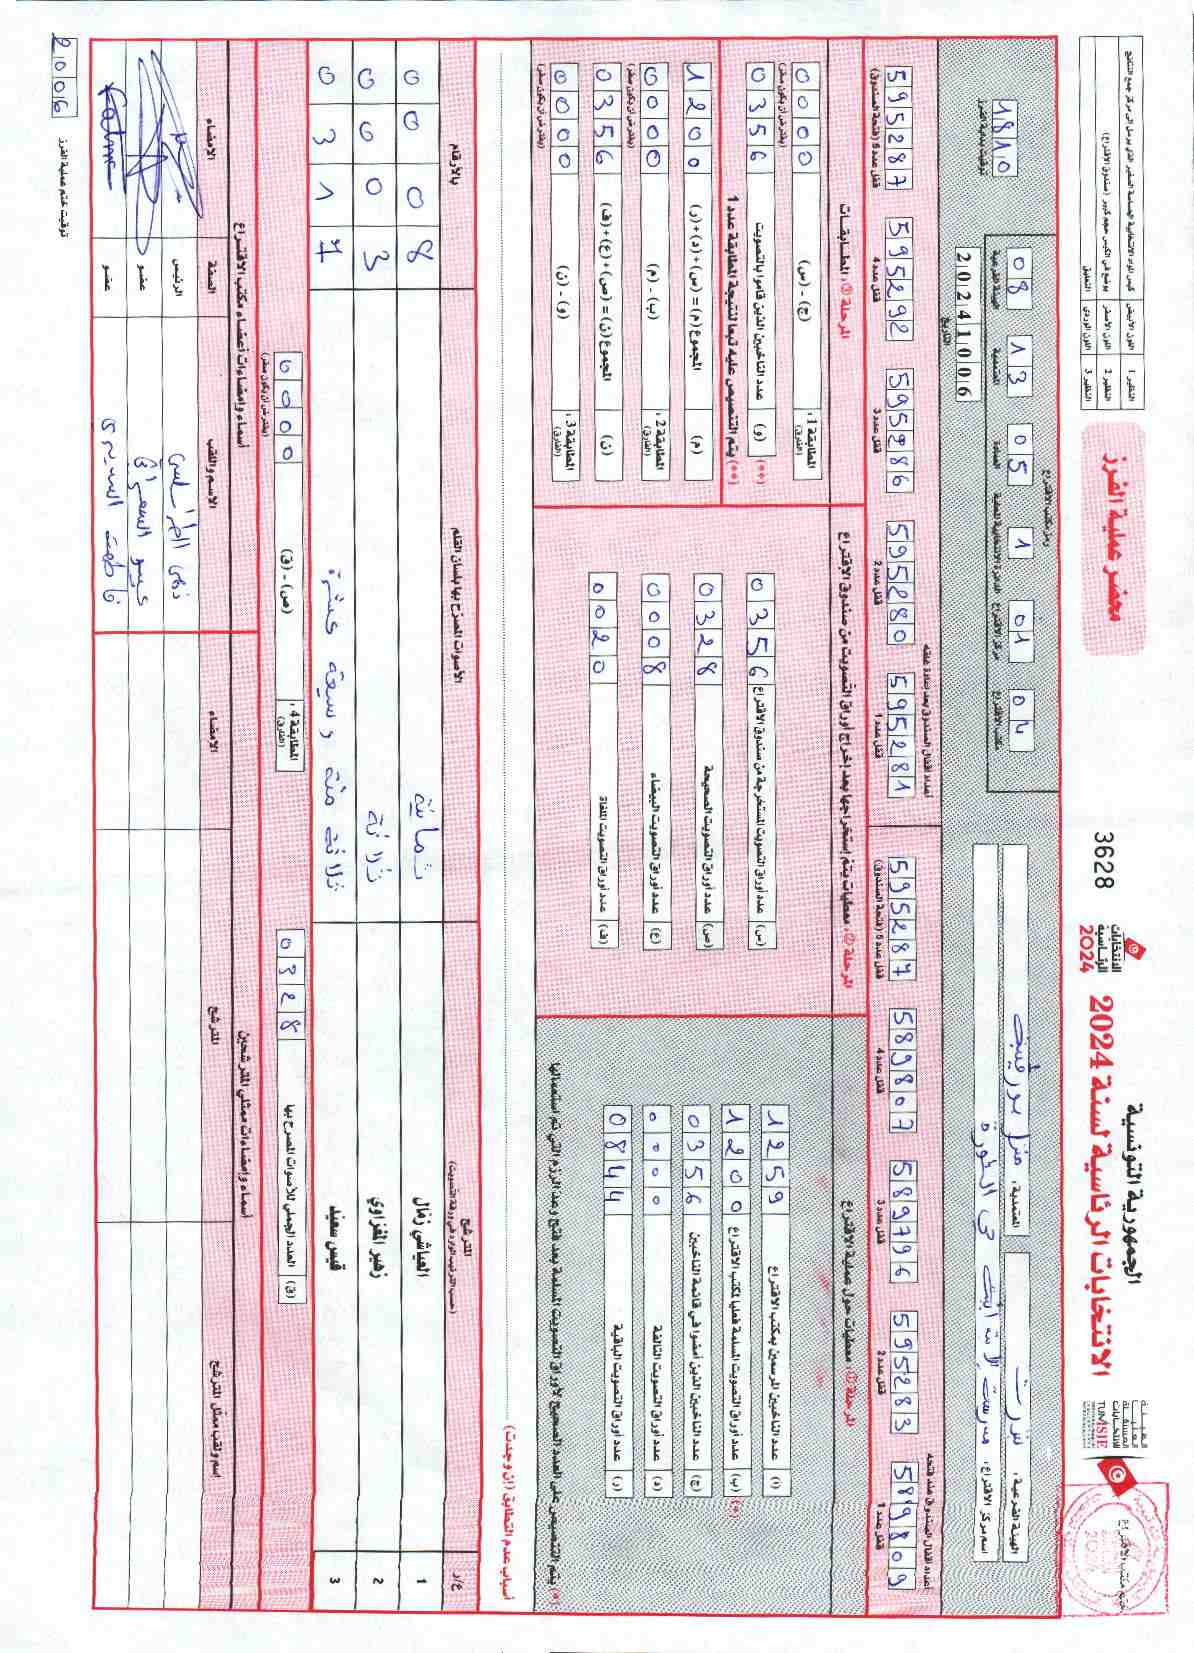 الجمهورية التونسية
الانتخابات الرئاسية لسنة 2024
الانتخابات
الرئاسية
2024
3628
محضر عملية الفرز
الهيئة
العليا
المستقلة
للانتخابات
TUNISIE
ختم مكتب الاقتراع
النظير 1 اللون الأبيض
النظير 2 اللون الأصفر
النظير 3 اللون الوردي
الهيئة الفرعية : بنزرت
المعتمدية : منزل بورقيبة
اسم مركز الاقتراع :
رمز مكتب الاقتراع
مكتب الاقتراع 02
مركز الاقتراع 01
الدائرة الانتخابية المحلية 1
العمادة 05
المعتمدية 13
الهيئة الفرعية 08
التاريخ
20241006
توقيت بداية الفرز
1810
أعداد أقفال الصندوق عند فتحه
قفل عدد 1 589809
قفل عدد 2 595283
قفل عدد 3 589796
قفل عدد 4 589807
قفل عدد 5 (فتحة الصندوق) 595287
أعداد أقفال الصندوق بعد إعادة غلقه
قفل عدد 1 595281
قفل عدد 2 595280
قفل عدد 3 595286
قفل عدد 4 595292
قفل عدد 5 (فتحة الصندوق) 595287
المرحلة ① : معطيات حول عملية الاقتراع
(أ) عدد الناخبين المرسمين بمكتب الاقتراع 1259
(ب) عدد أوراق التصويت المسلمة فعليا لمكتب الاقتراع 1200 (*)
(ج) عدد الناخبين الذين أمضوا في قائمة الناخبين 0356
(د) عدد أوراق التصويت التالفة 0000
(ر) عدد أوراق التصويت الباقية 0844
(*) يتم التنصيص على العدد الصحيح لأوراق التصويت المسلمة بعد فتح وعد الرزم التي تم استعمالها
المرحلة ② : معطيات يتم إستخراجها بعد إخراج أوراق التصويت من صندوق الاقتراع
(س) عدد أوراق التصويت المستخرجة من صندوق الاقتراع 0356
(ص) عدد أوراق التصويت الصحيحة 0328
(ع) عدد أوراق التصويت البيضاء 0008
(ف) عدد أوراق التصويت الملغاة 0020
المرحلة ③ : المطابقات
المطابقة 1 : (الفارق) (ج) - (س) 0000 (يفترض أن يكون صفر)
(و) (**) عدد الناخبين الذين قاموا بالتصويت 0356
(**) يتم التنصيص عليه تبعا لنتيجة المطابقة عدد 1
(م) المجموع (م) = (س) + (د) + (ر) 1200
المطابقة 2 : (الفارق) (ب) - (م) 0000 (يفترض أن يكون صفر)
(ن) المجموع (ن) = (ص) + (ع) + (ف) 0356
المطابقة 3 : (الفارق) (و) - (ن) 0000 (يفترض أن يكون صفر)
أسباب عدم التطابق (إن وجدت)
ع/ر المترشح (حسب الترتيب الوارد في ورقة التصويت) الأصوات المصرّح بها بلسان القلم بالأرقام
1 العياشي زمال ثمانية 0008
2 زهير المغزاوي ثلاثة 0003
3 قيس سعيد ثلاثمئة وسبعة عشرة 0317
(ق) العدد الجملي للأصوات المصرح بها 0328
المطابقة 4 : (الفارق) (ص) - (ق) 0000 (يفترض أن يكون صفر)
أسماء وإمضاءات ممثلي المترشحين
اسم ولقب ممثل المترشح المترشح الامضاء
أسماء وإمضاءات أعضاء مكتب الاقتراع
الاسم واللقب الصفة الامضاء
الرئيس
عضو
عضو Fatma
توقيت ختم عملية الفرز
2006